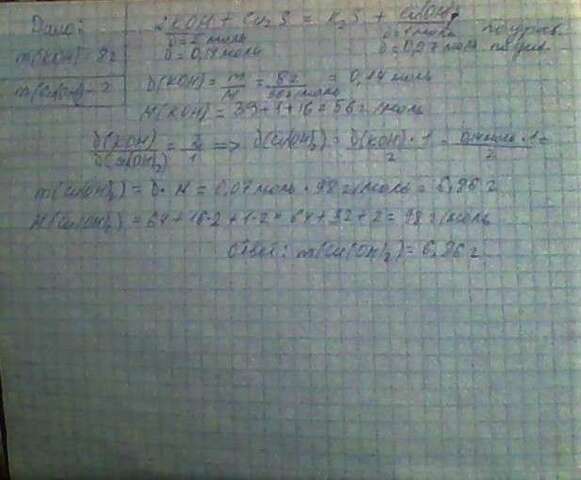 Дано:
2KOH + Cu₂S = K₂S + Cu(OH)₂
ν = 2 моль ν = 1 моль по уравн.
m(KOH) = 8г ν = 0,14 моль ν = 0,07 моль
m(Cu(OH)₂) - ?
ν(KOH) = m/M = 8г/56г/моль = 0,14 моль
M(KOH) = 39+1+16 = 56 г/моль
ν(KOH)/ν(Cu(OH)₂) = 2/1 => ν(Cu(OH)₂) = ν(KOH)·1/2 =
m(Cu(OH)₂) = ν · M = 0,07 моль · 98 г/моль = 6,86 г
M(Cu(OH)₂) = 64+16·2+1·2 = 64+32+2 = 98 г/моль
Ответ: m(Cu(OH)₂) = 6,86 г